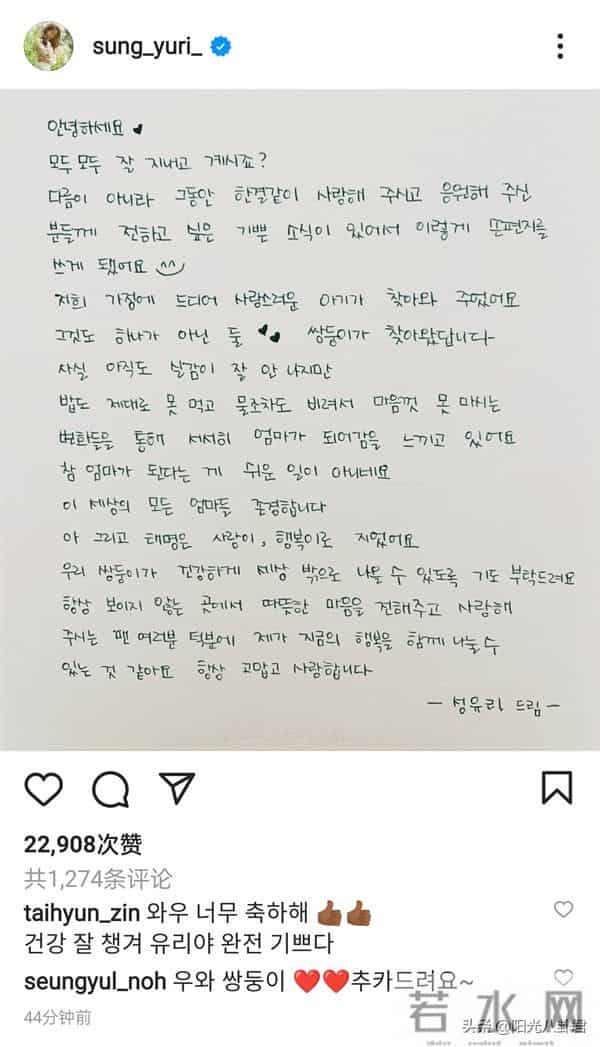 sung_yuri_
안녕하세요
모두모두 잘 지내고 계시죠?
다름이 아니라 그동안 한결같이 사랑해 주시고 응원해 주신
분들께 전하고 싶은 기쁜 소식이 있어서 이렇게 손편지를
쓰게 됐어요 ^^
저희 가정에 드디어 사랑스러운 아기가 찾아와 주었어요
그것도 하나가 아닌 둘 쌍둥이가 찾아왔답니다
사실 아직도 실감이 잘 안 나지만
밥도 제대로 못 먹고 물조차도 비려서 마음껏 못 마시는
변화들을 통해 서서히 엄마가 되어감을 느끼고 있어요
참 엄마가 된다는 게 쉬운 일이 아니네요
이 세상의 모든 엄마들 존경합니다
아 그리고 태명은 사랑이, 행복이로 지었어요
우리 쌍둥이가 건강하게 세상 밖으로 나올 수 있도록 기도 부탁드려요
항상 보이지 않는 곳에서 따뜻한 마음을 전해주고 사랑해
주시는 팬 여러분 덕분에 제가 지금의 행복을 함께 나눌 수
있는 것 같아요 항상 고맙고 사랑합니다
- 성유리 드림 -
22,908次赞
共1,274条评论
taihyun_zin 와우 너무 축하해 👍🏾👍🏾
건강 잘 챙겨 유리야 완전 기쁘다
seungyul_noh 우와 쌍둥이 ❤️❤️추카드려요~
44分钟前
若水网
头条@阳光八卦君